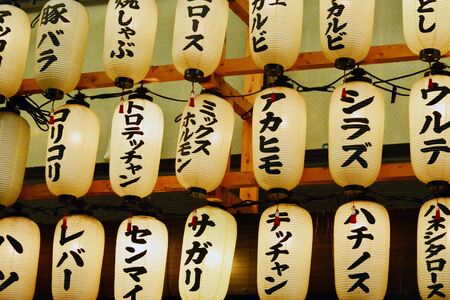 豚バラ
焼しゃぶ
ロース
カルビ
カルビ
コリコリ
トロテッチャン
ミックス
ホルモン
アカヒモ
シラズ
ウルテ
ハツ
レバー
センマイ
サガリ
テッチャン
ハチノス
ハネシタロース